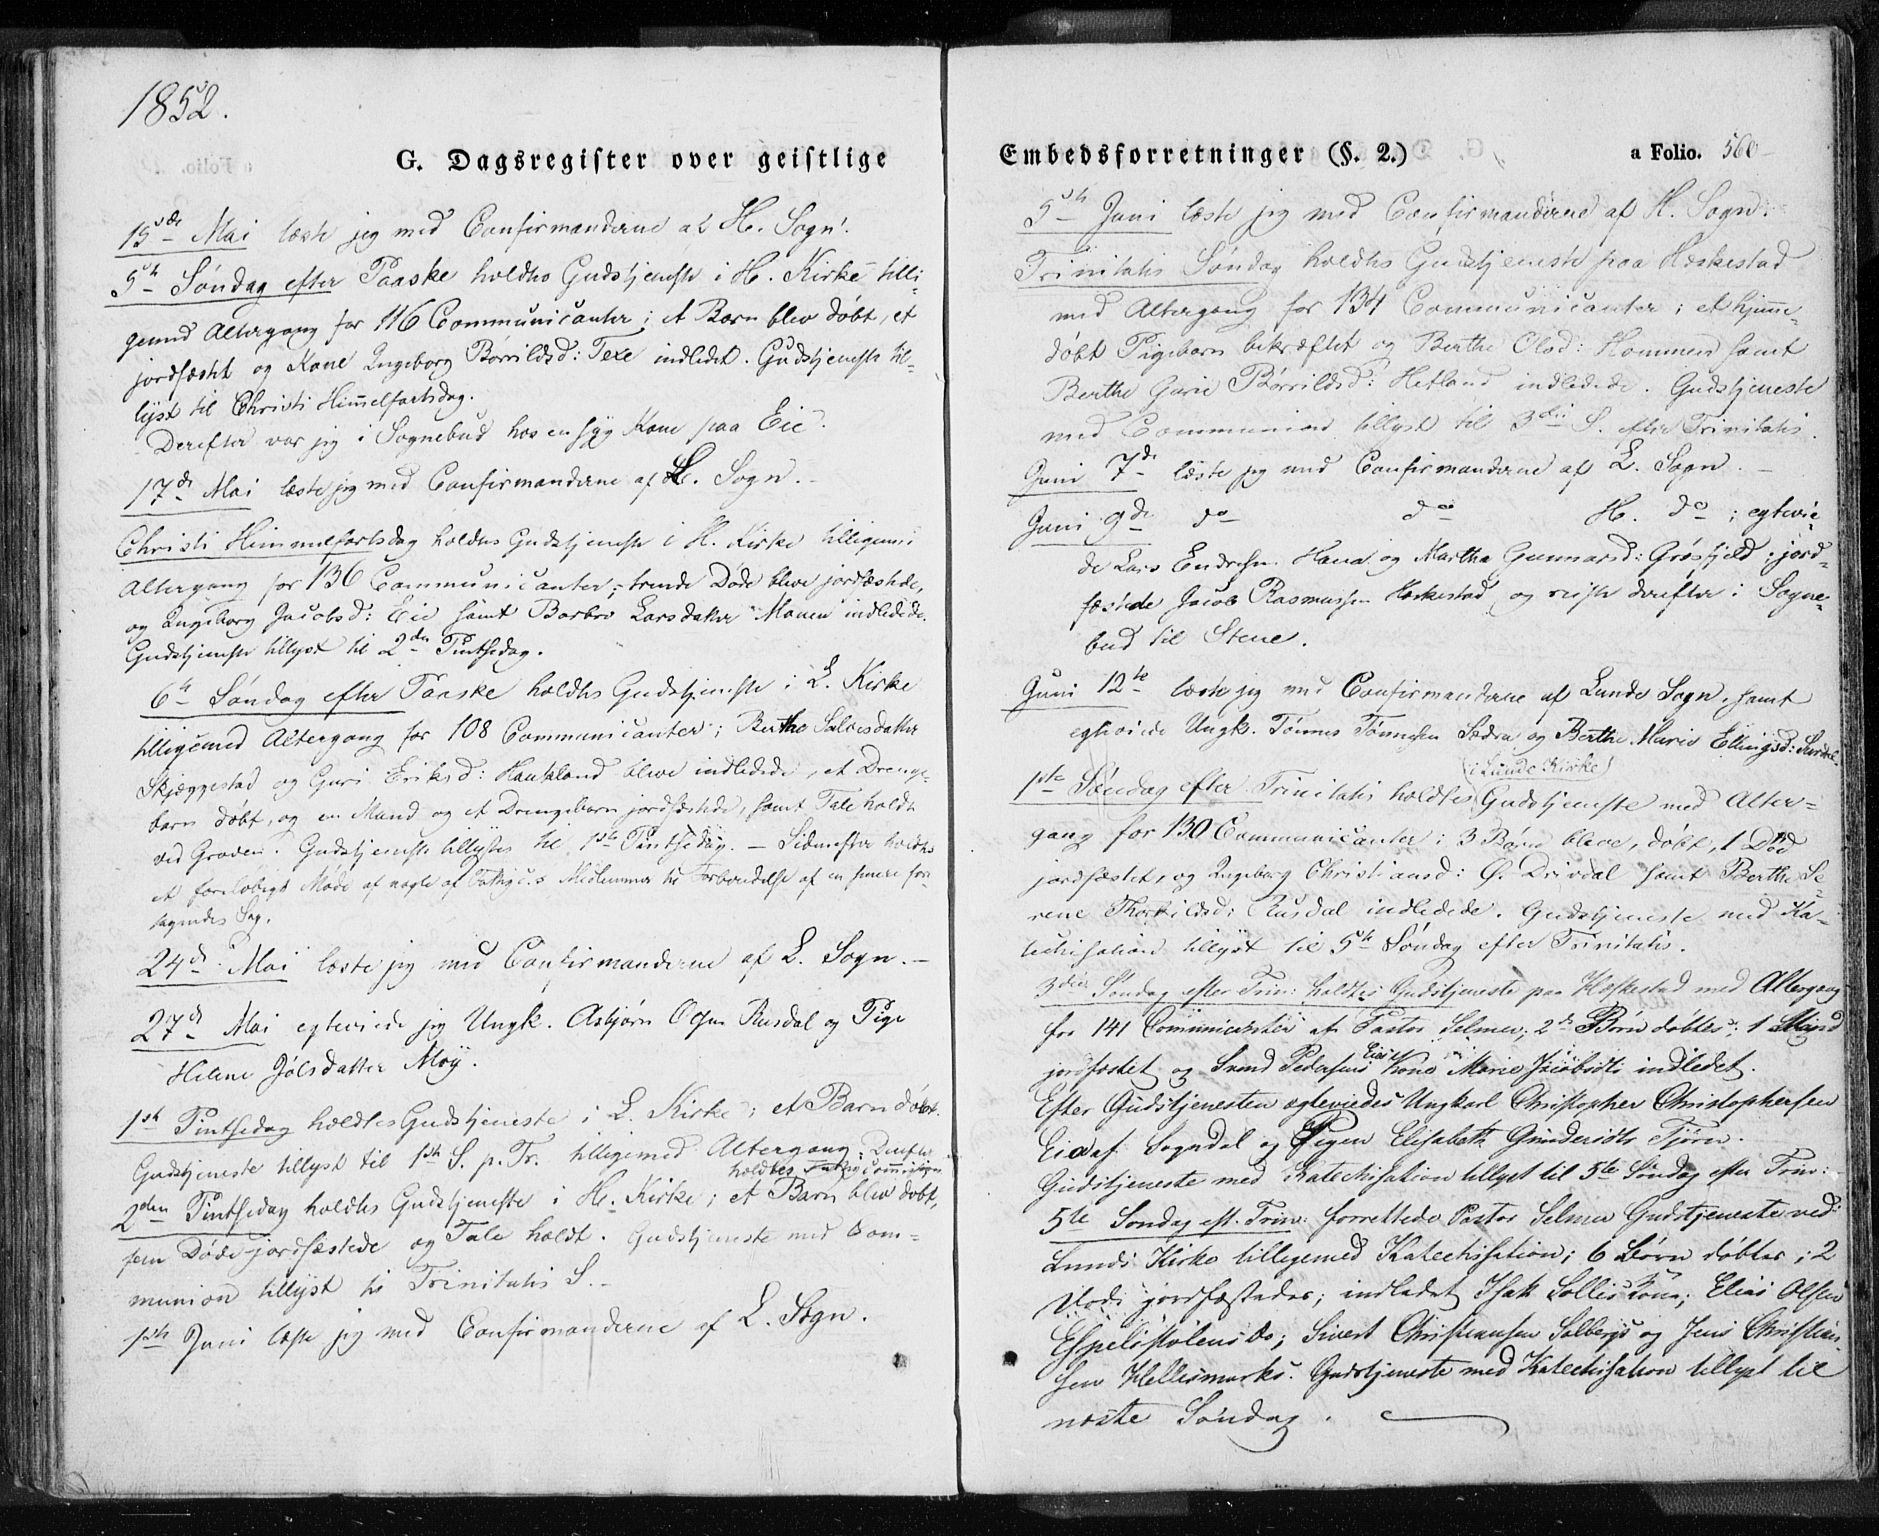 1852.
G. Dagsregister over geistlige
15de Mai læste jeg med Confirmanderne af H. Sogn.
5te Søndag efter Paaske holdtes Gudstjeneste i H. Kirke tilli-
gemed Altergang for 116 Communicanter; et Barn blev døbt, et
jordfæstet og Kone Ingeborg Børrildsd: Texe indledet. Gudstjeneste til-
lyst til Christi Himmelfartsdag.
Derefter var jeg i Sognebud hos en syg Kone paa Eie.
17de Mai læste jeg med Confirmanderne af L. Sogn.
Christi Himmelfartsdag holdtes Gudstjeneste i H. Kirke tilligemed
Altergang for 136 Communicanter; trende Døde bleve jordfæstede,
og Ingeborg Jacobsd: Eie samt Barbro Larsdatter Mouen indledede.
Gudstjeneste tillyst til 2den Pintsedag.
6te Søndag efter Paaske holdtes Gudstjeneste i L. Kirke
tilligemed Altergang for 108 Communicanter; Berthe Salvesdatter
Skjæggestad og Guri Eriksd: Haukland bleve indledede, et Drenge-
barn døbt, og en Mand og et Drengebarn jordfæstede, samt Tale holdt
ved Graven. Gudstjeneste tillystes til 1ste Pintsedag. – Sidenefter holdtes
et foreløbigt Møde af nogle af Fattigc.s Medlemmer til Forberedelse af en senere fore-
tagendes Sag.
24de Mai læste jeg med Confirmanderne af L. Sogn. –
27de Mai egteviede jeg Ungk. Asbjørn Olsen Rusdal og Pige
Helene Joelsdatter Moy.
1ste Pintsedag holdtes Gudstjeneste i L. Kirke; et Barn døbt.
Gudstjeneste tillyst til 1ste S. p. Tr. tilligemed Altergang; Derefter
holdtes Fattigcommission
2den Pintsedag holdtes Gudstjeneste i H. Kirke; et Barn blev døbt,
fem Døde jordfæstede og Tale holdt. Gudstjeneste med Com-
munion tillyst til Trinitatis S. –
1ste Juni læste jeg med Confirmanderne af L. Sogn.
Embedsforretninger (§. 2.)
a Folio. 560
5te Juni læste jeg med Confirmanderne af H. Sogn.
Trinitatis Søndag holdtes Gudstjeneste paa Heskestad
med Altergang for 134 Communicanter; et hjemme-
døbt Pigebarn bekræftet og Berthe Olsd: Hommen samt
Berthe Gurie Børrildsd: Hetland indledede. Gudstjeneste
med Communion tillyst til 3die S. efter Trinitatis.
Juni 7de læste jeg med Confirmanderne af L. Sogn. –
Juni 9de do do H. do; egtevie-
de Lars Endresen Haua og Martha Gunnarsd: Grøsfjeld; jord-
fæstede Jacob Rasmussen Heskestad og reiste derefter i Sogne-
bud til Stene.
Juni 12te læste jeg med Confirmanderne af Lunde Sogn, samt
egteviede Ungk. Tønnes Tønnesen Ladra og Berthe Marie Ellingsd: Surdal.
(i Lunde Kirke)
1ste Søndag efter Trinitatis holdtes Gudstjeneste med Alter-
gang for 130 Communicanter; 3 Børn bleve døbt, 1 Død
jordfæstet, og Ingeborg Christiansd: Ø. Drivdal samt Berthe Se-
rene Thorkildsd: Rusdal indledede. Gudstjeneste med Ka-
techisation tillyst til 5te Søndag efter Trinitatis.
3die Søndag efter Trin: holdtes Gudstjeneste paa Heskestad med Altergang
for 141 Communicanter af Pastor Selmer; 2de Børn døbtes; 1 Mand
jordfæstet og Svend Pedersens Eies Kone Marie Jacobsdtr indledet.
Efter Gudstjenesten egteviedes Ungkarl Christopher Christophersen
Eia af Sogndal og Pigen Elisabeth Gundersdtr Tjørn.
Gudstjeneste med Katechisation tillyst til 5te Søndag efter Trin:
5te Søndag eft. Trin: forrettede Pastor Selmer Gudstjeneste ved
Lunds Kirke tilligemed Katechisation; 6 Børn døbtes; 2
Døde jordfæstedes; indledet Isak Sollis Kone; Elias Olsen
Espelistølens do; Sivert Christiansen Solbergs og Jens Christian-
sen Hellesmarks. Gudstjeneste med Katechisation tillyst til
næste Søndag.